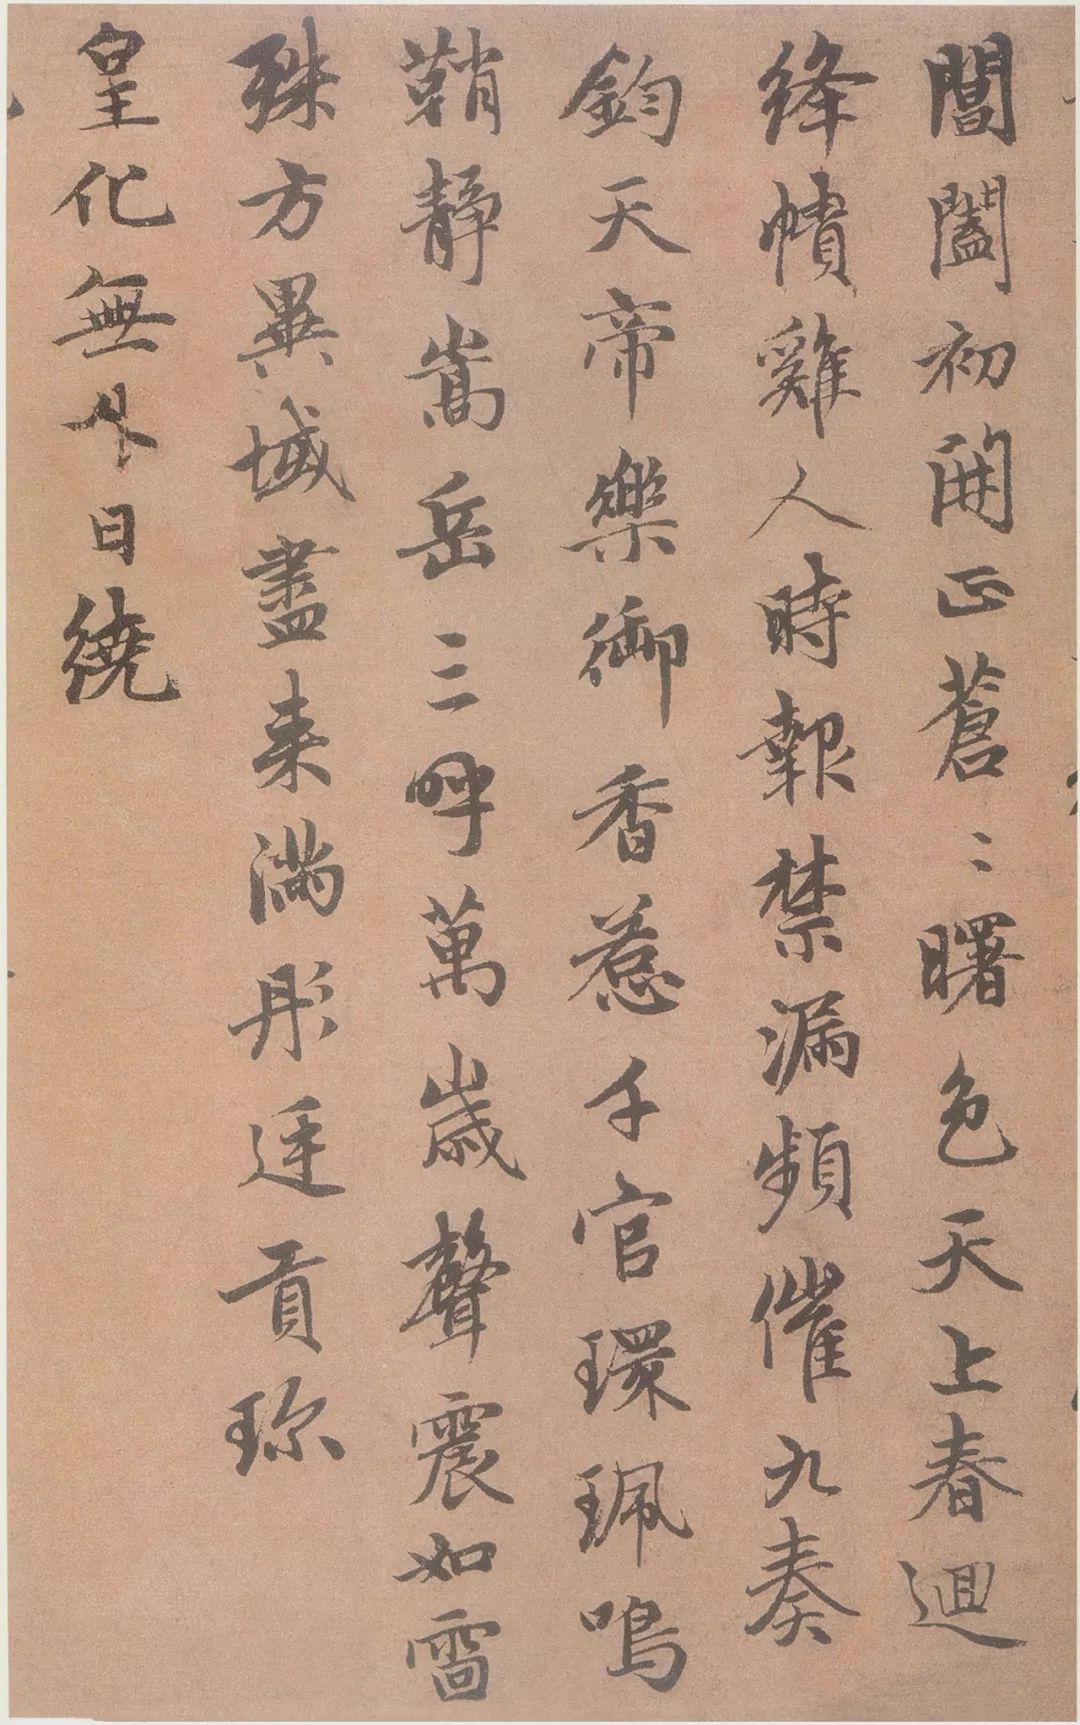 閶闔初開正蒼〻曙色天上春迴
絳幘雞人時報禁漏頻催九奏
鈞天帝樂御香惹千官環珮鳴
鞘靜嵩岳三呼萬歲聲震如雷
殊方異域盡來滿彤廷貢珎
皇化無外日繞